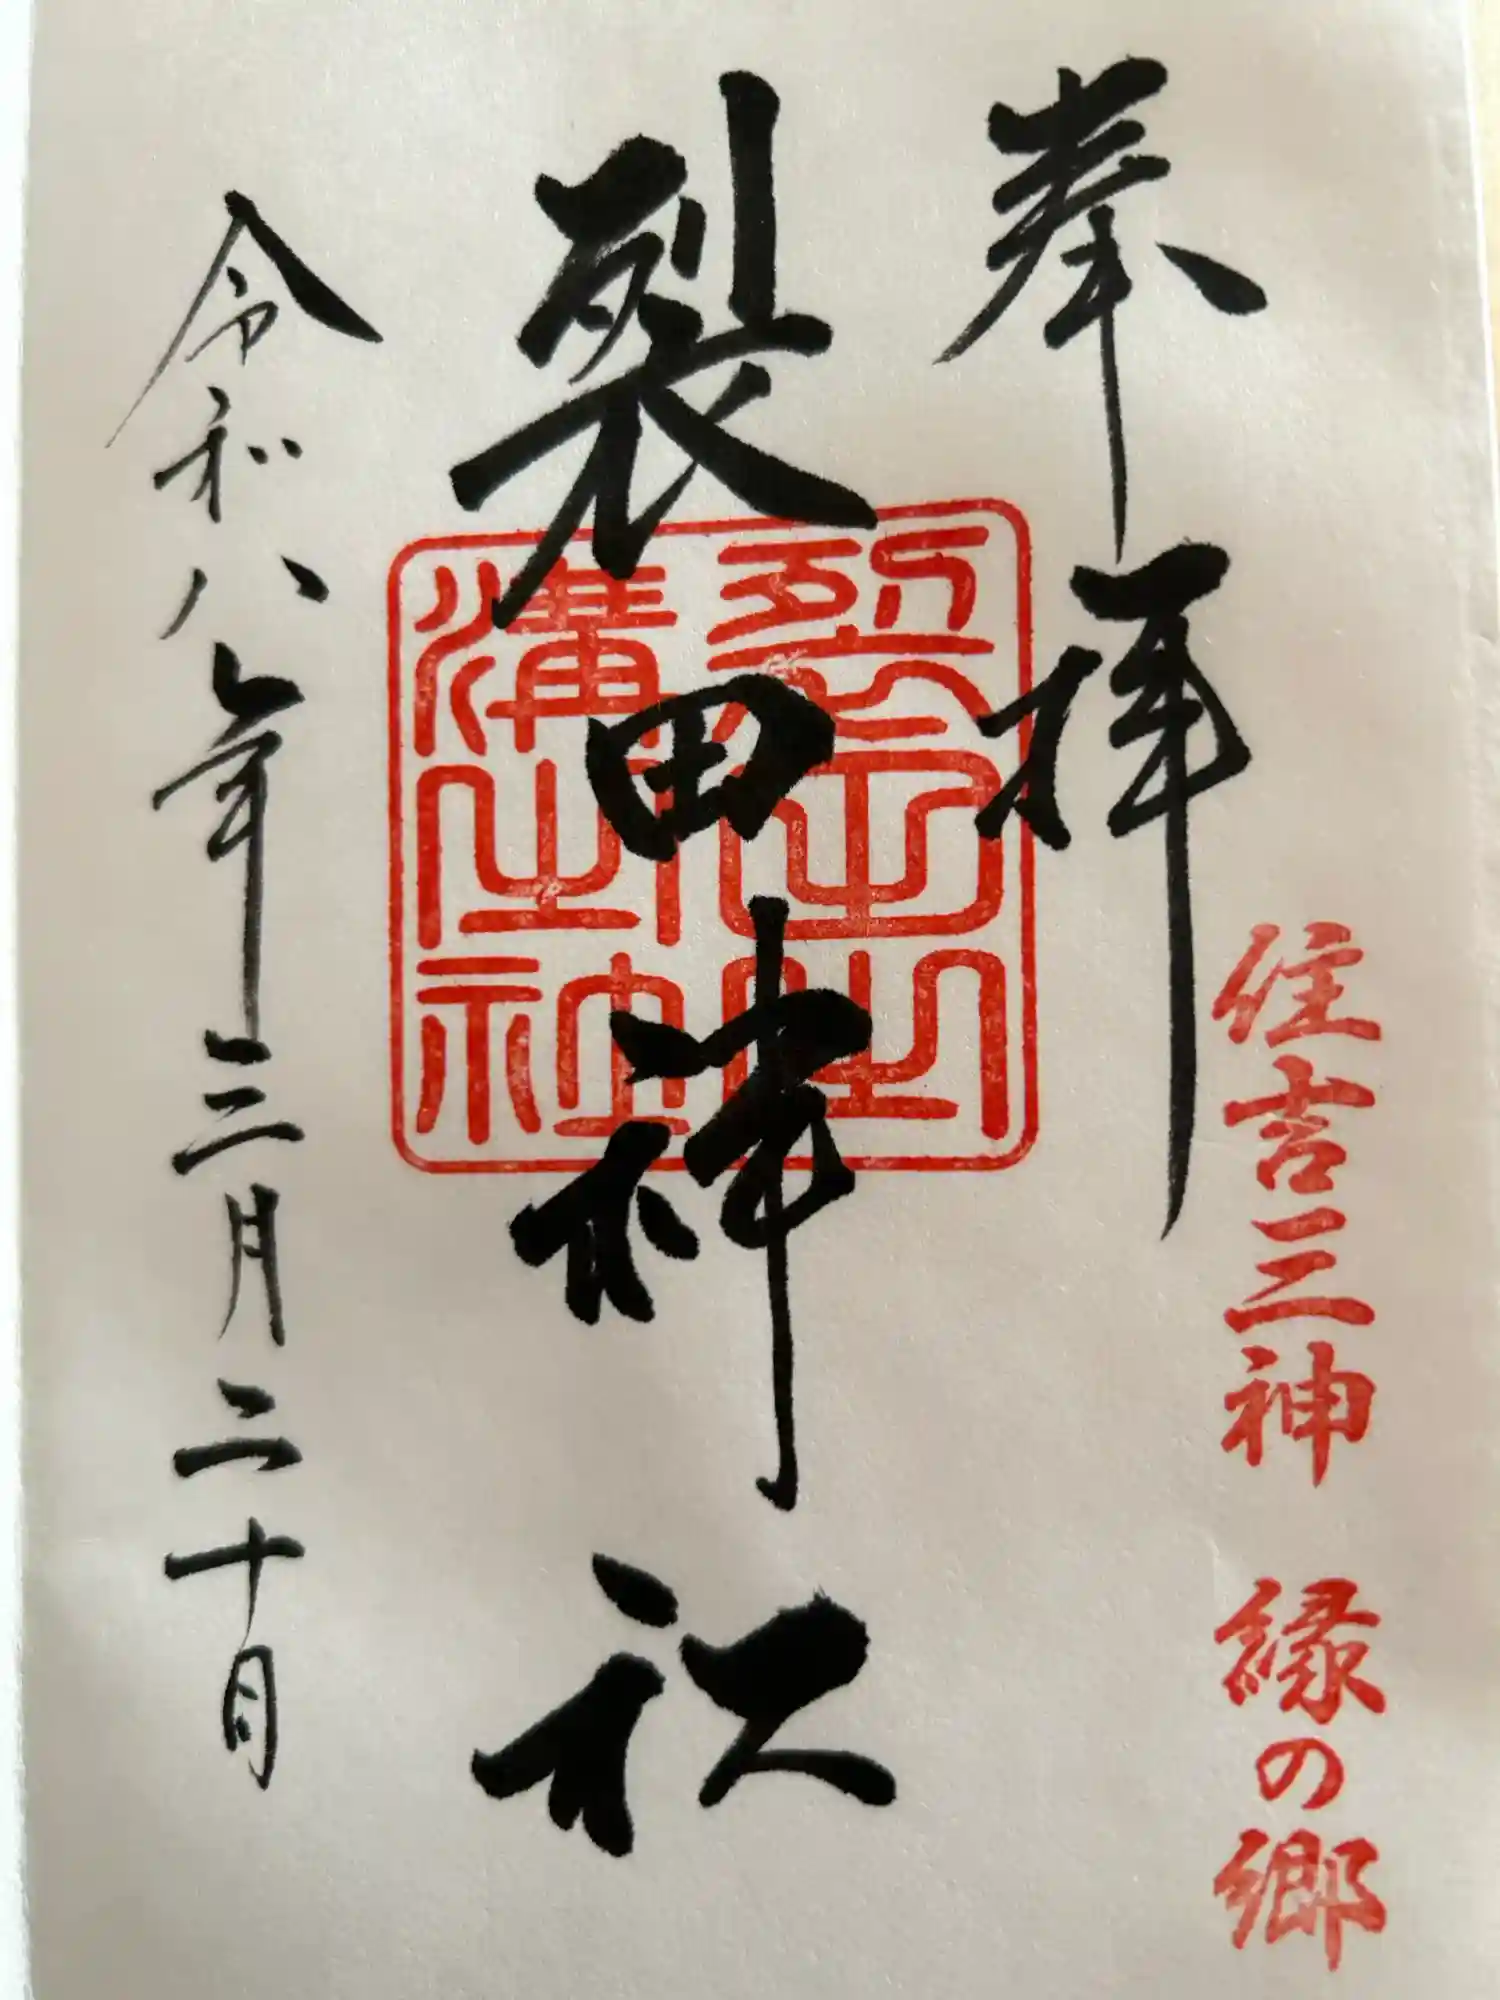 奉拝
住吉三神 縁の郷
裂田神社
令和八年三月二十日